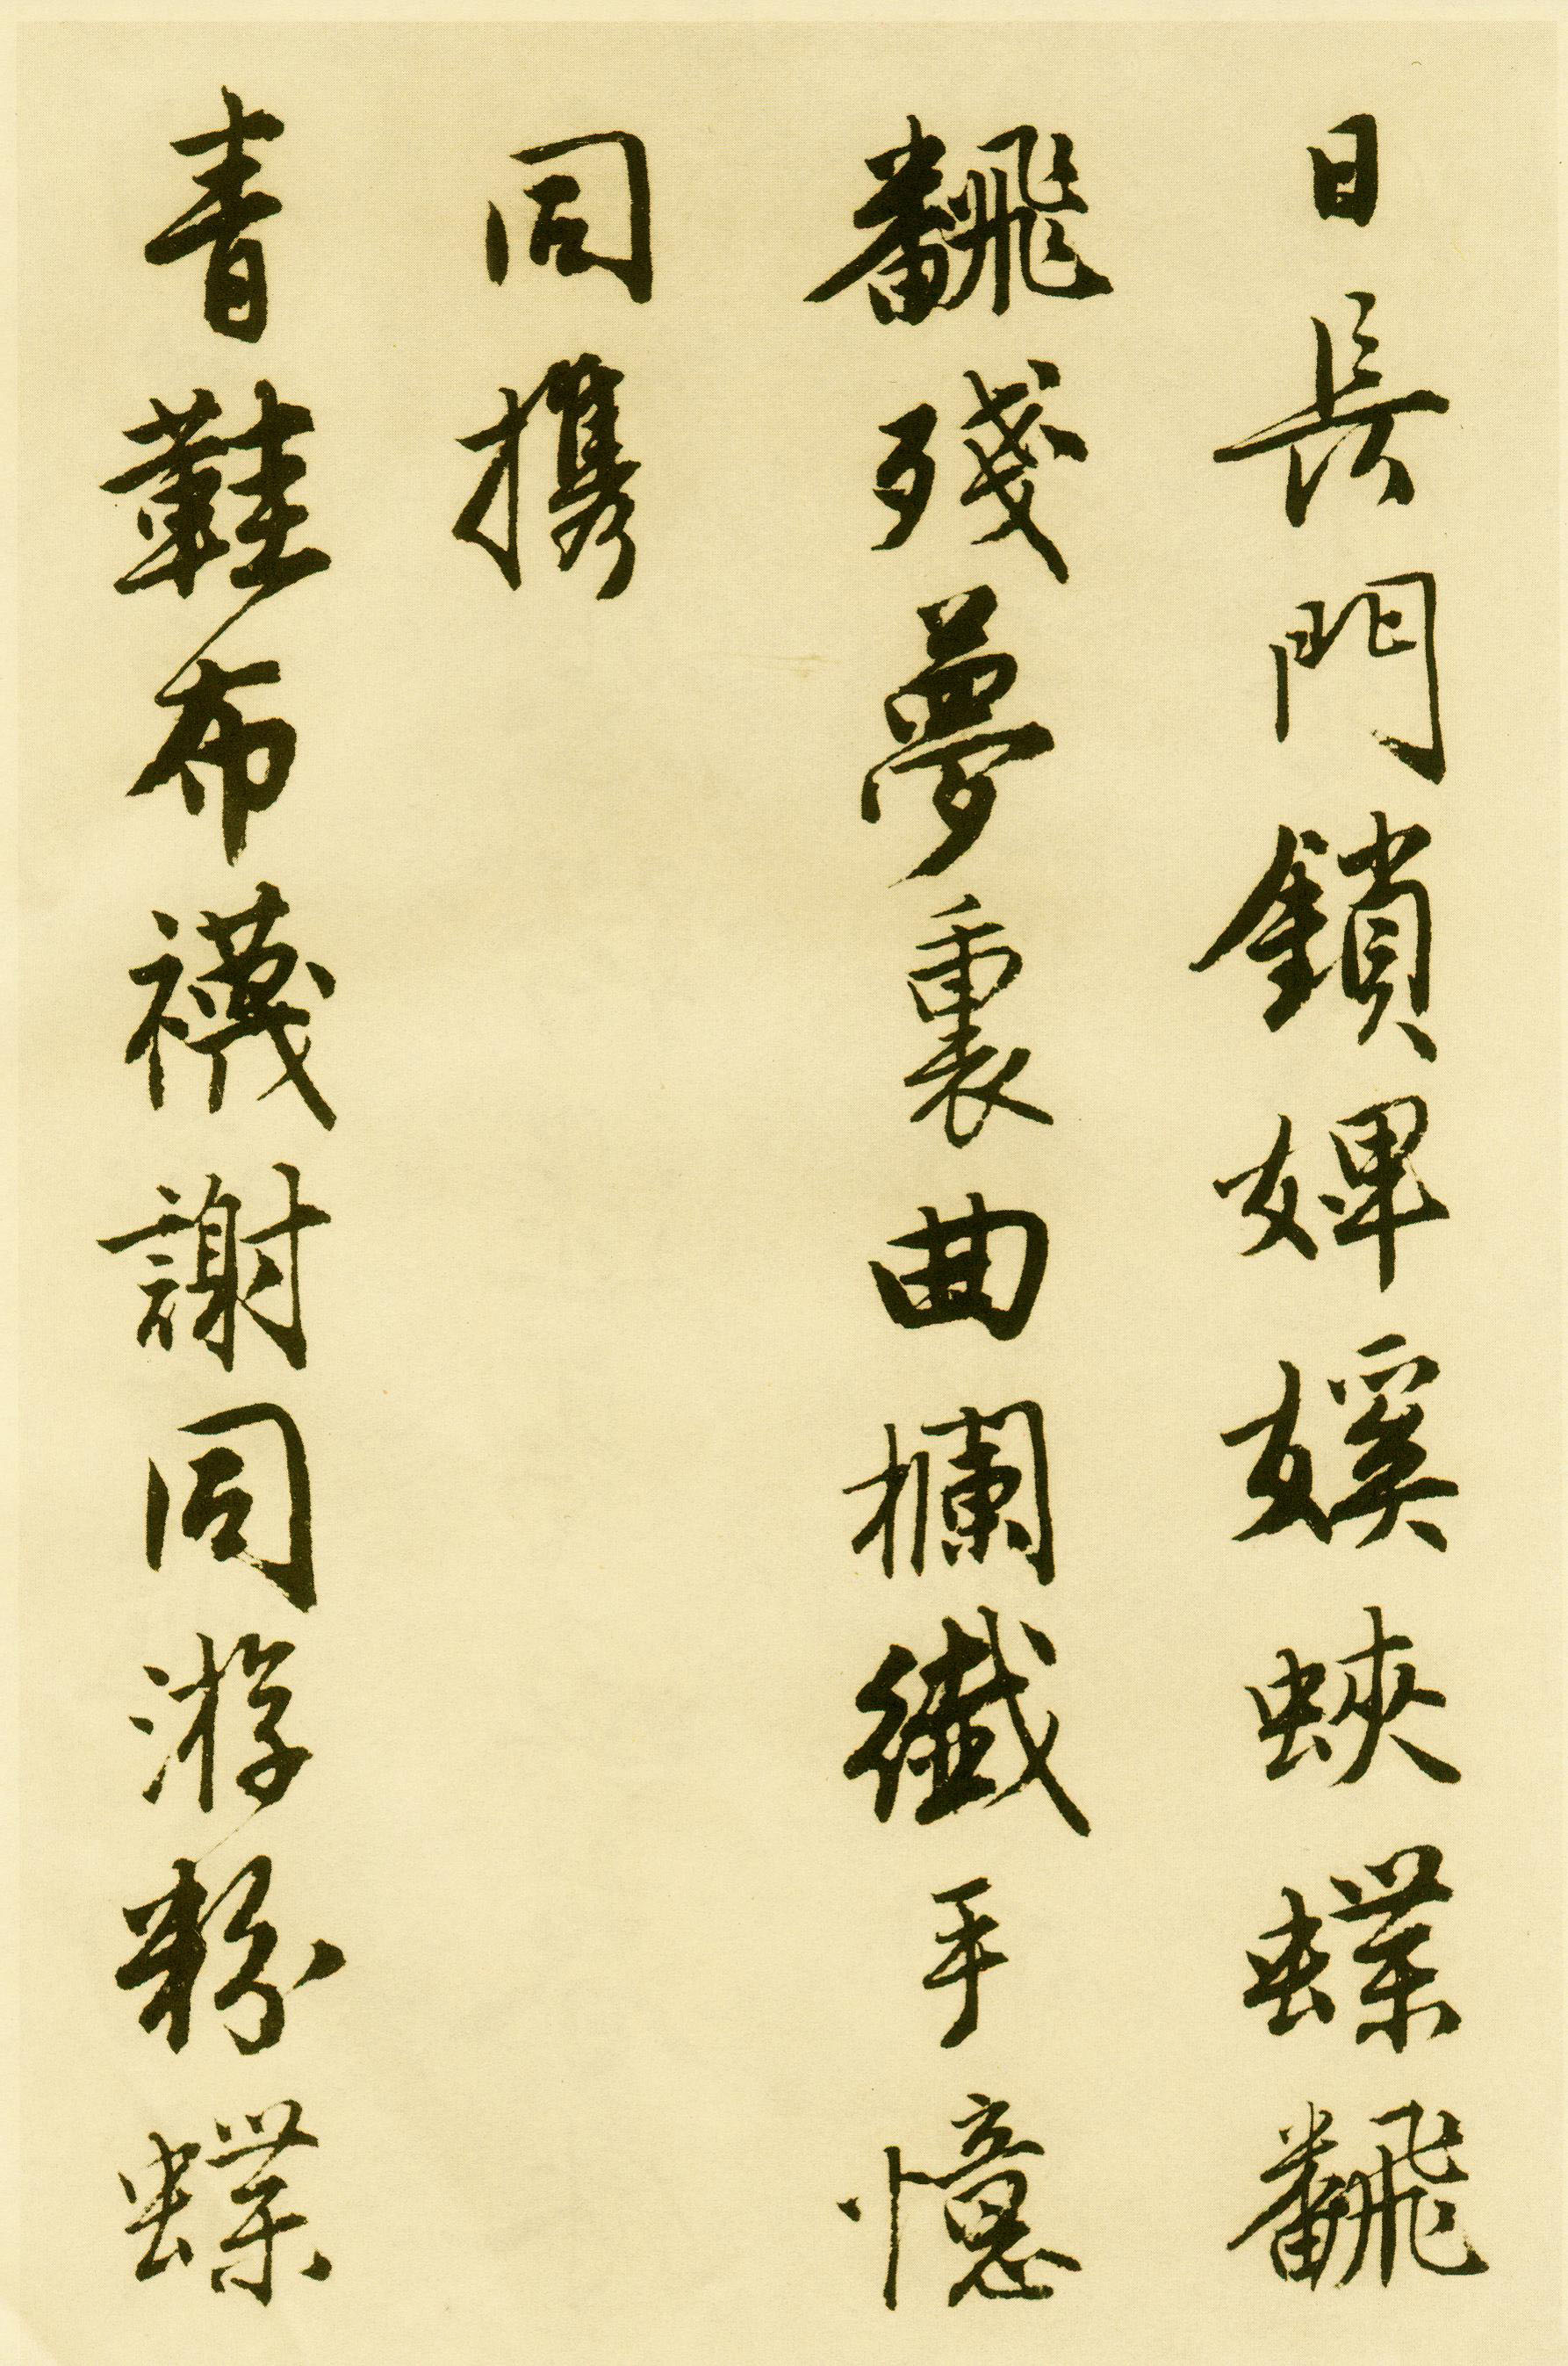 日長門鎖婢媛蛺蝶飜
飜殘夢裏曲欄纖手憶
同攜
青鞋布襪謝同游粉蝶